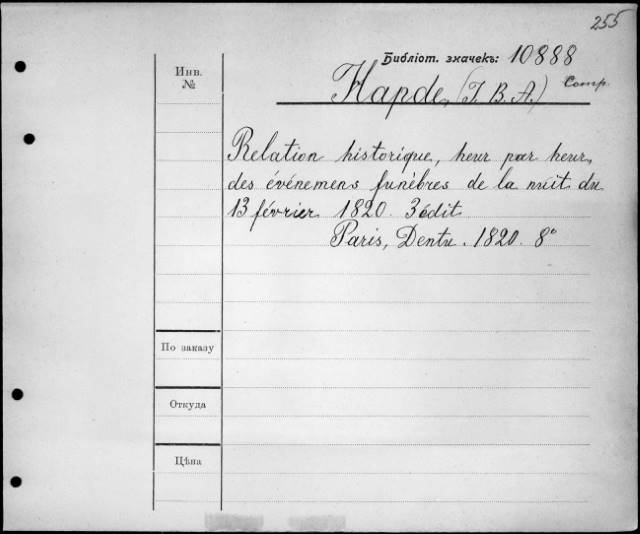 255
Библіот. значекъ: 10888
Инв.
№
Hapde, (J. B. A.) Comp.
Relation historique, heur par heur,
des événemens funèbres de la nuit du
13 février 1820. 3 édit.
Paris, Dentu. 1820. 8°
По заказу
Откуда
Цѣна